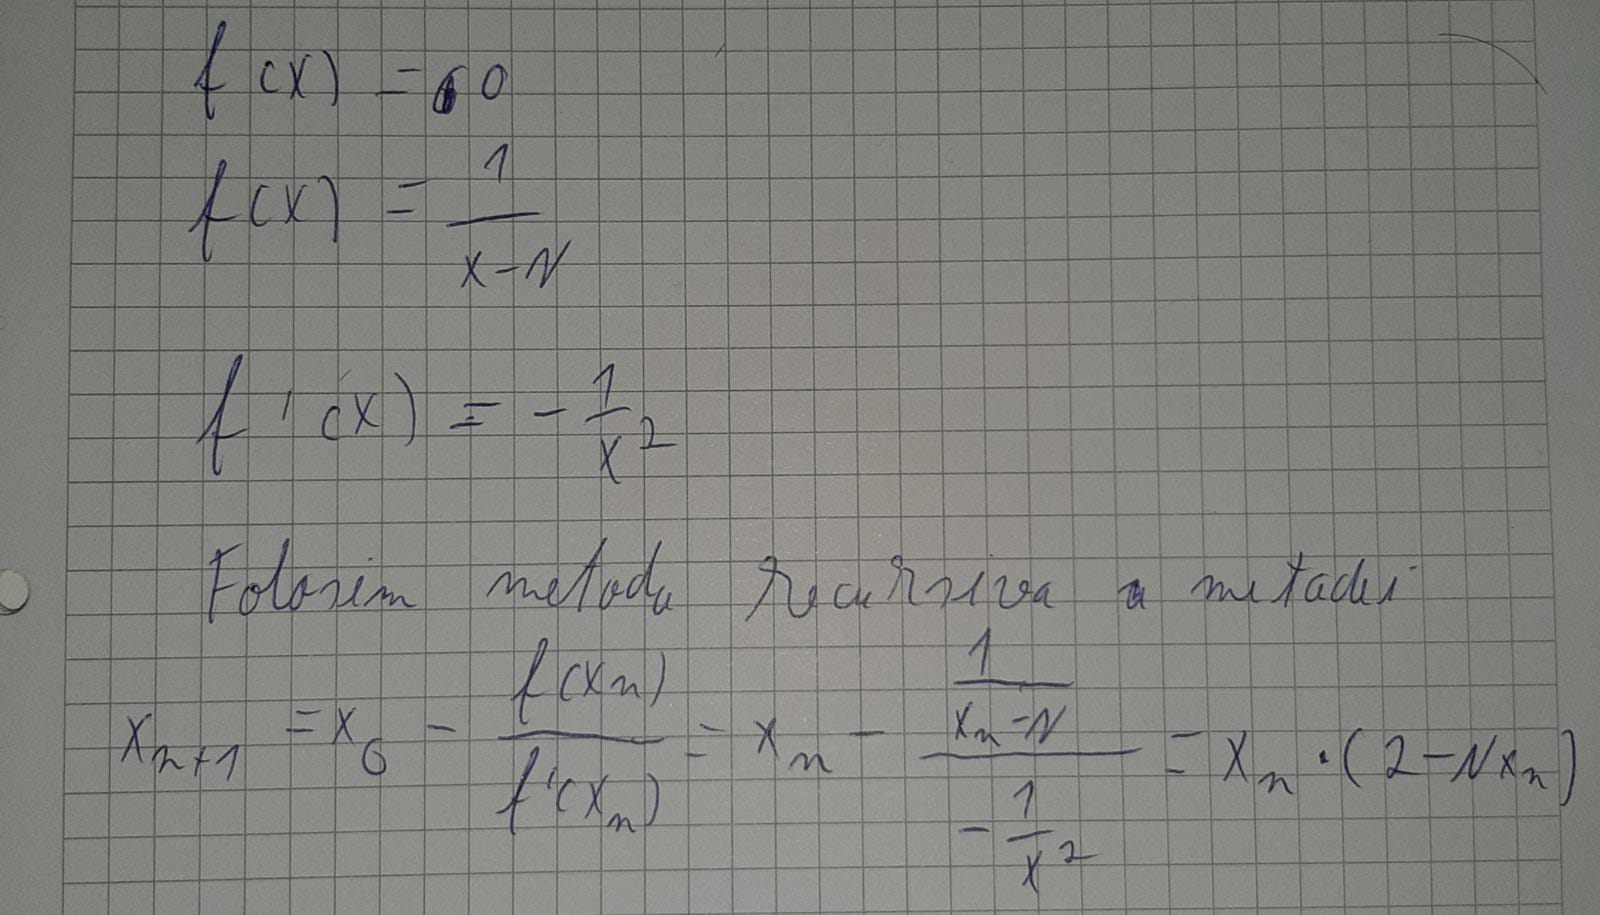 f(x) = 0
f(x) = 1/(x-N)
f'(x) = - 1/x²
Folosim metoda recursiva a metodei
x_{n+1} = x_0 - f(x_n)/f'(x_n) = x_n - (1/(x_n-N))/(-1/x²) = x_n · (2-Nx_n)